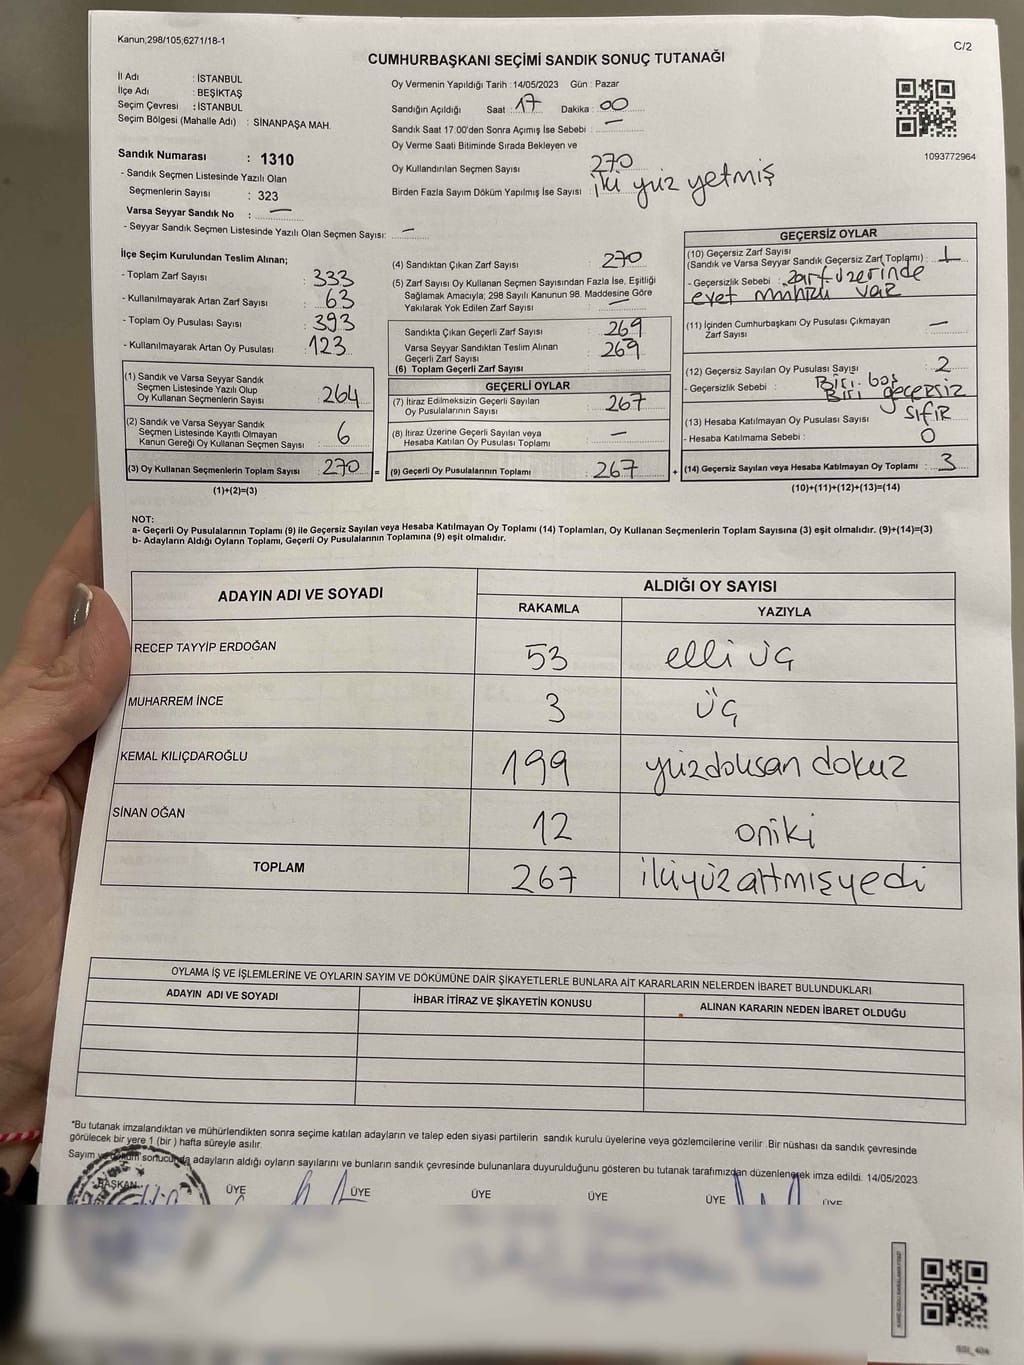 Kanun;298/105;6271/18-1
C/2
CUMHURBAŞKANI SEÇİMİ SANDIK SONUÇ TUTANAĞI
İl Adı : İSTANBUL
İlçe Adı : BEŞİKTAŞ
Seçim Çevresi : İSTANBUL
Seçim Bölgesi (Mahalle Adı) : SİNANPAŞA MAH.
Sandık Numarası : 1310
- Sandık Seçmen Listesinde Yazılı Olan
Seçmenlerin Sayısı : 323
Varsa Seyyar Sandık No : —
- Seyyar Sandık Seçmen Listesinde Yazılı Olan Seçmen Sayısı: —
Oy Vermenin Yapıldığı Tarih : 14/05/2023 Gün : Pazar
Sandığın Açıldığı Saat : 17 Dakika : 00
Sandık Saat 17.00'den Sonra Açımış İse Sebebi : —
Oy Verme Saati Bitiminde Sırada Bekleyen ve
Oy Kullandırılan Seçmen Sayısı : 270
Birden Fazla Sayım Döküm Yapılmış İse Sayısı : iki yüz yetmiş
1093772964
İlçe Seçim Kurulundan Teslim Alınan;
- Toplam Zarf Sayısı : 333
- Kullanılmayarak Artan Zarf Sayısı : 63
- Toplam Oy Pusulası Sayısı : 393
- Kullanılmayarak Artan Oy Pusulası : 123
(1) Sandık ve Varsa Seyyar Sandık
Seçmen Listesinde Yazılı Olup
Oy Kullanan Seçmenlerin Sayısı : 264
(2) Sandık ve Varsa Seyyar Sandık
Seçmen Listesinde Kayıtlı Olmayan
Kanun Gereği Oy Kullanan Seçmen Sayısı : 6
(3) Oy Kullanan Seçmenlerin Toplam Sayısı : 270 =
(1)+(2)=(3)
(4) Sandıktan Çıkan Zarf Sayısı : 270
(5) Zarf Sayısı Oy Kullanan Seçmen Sayısından Fazla İse, Eşitliği
Sağlamak Amacıyla; 298 Sayılı Kanunun 98. Maddesine Göre
Yakılarak Yok Edilen Zarf Sayısı : —
Sandıkta Çıkan Geçerli Zarf Sayısı : 269
Varsa Seyyar Sandıktan Teslim Alınan
Geçerli Zarf Sayısı : 269
(6) Toplam Geçerli Zarf Sayısı
GEÇERLİ OYLAR
(7) İtiraz Edilmeksizin Geçerli Sayılan
Oy Pusulalarının Sayısı : 267
(8) İtiraz Üzerine Geçerli Sayılan veya
Hesaba Katılan Oy Pusulası Toplamı : —
(9) Geçerli Oy Pusulalarının Toplamı : 267 +
GEÇERSİZ OYLAR
(10) Geçersiz Zarf Sayısı
(Sandık ve Varsa Seyyar Sandık Geçersiz Zarf Toplamı) : 1
- Geçersizlik Sebebi : zarf üzerinde
evet mührü var
(11) İçinden Cumhurbaşkanı Oy Pusulası Çıkmayan
Zarf Sayısı : —
(12) Geçersiz Sayılan Oy Pusulası Sayısı : 2
- Geçersizlik Sebebi : Biri boş
Biri geçersiz
(13) Hesaba Katılmayan Oy Pusulası Sayısı : SıfıR
- Hesaba Katılmama Sebebi : 0
(14) Geçersiz Sayılan veya Hesaba Katılmayan Oy Toplamı : 3
(10)+(11)+(12)+(13)=(14)
NOT:
a- Geçerli Oy Pusulalarının Toplamı (9) ile Geçersiz Sayılan veya Hesaba Katılmayan Oy Toplamı (14) Toplamları, Oy Kullanan Seçmenlerin Toplam Sayısına (3) eşit olmalıdır. (9)+(14)=(3)
b- Adayların Aldığı Oyların Toplamı, Geçerli Oy Pusulalarının Toplamına (9) eşit olmalıdır.
ADAYIN ADI VE SOYADI
ALDIĞI OY SAYISI
RAKAMLA YAZIYLA
RECEP TAYYİP ERDOĞAN 53 elli üç
MUHARREM İNCE 3 üç
KEMAL KILIÇDAROĞLU 199 yüzdoksan dokuz
SİNAN OĞAN 12 oniki
TOPLAM 267 ikiyüzaltmışyedi
OYLAMA İŞ VE İŞLEMLERİNE VE OYLARIN SAYIM VE DÖKÜMÜNE DAİR ŞİKAYETLERLE BUNLARA AİT KARARLARIN NELERDEN İBARET BULUNDUKLARI
ADAYIN ADI VE SOYADI İHBAR İTİRAZ VE ŞİKAYETİN KONUSU ALINAN KARARIN NEDEN İBARET OLDUĞU
*Bu tutanak imzalandıktan ve mühürlendikten sonra seçime katılan adayların ve talep eden siyasi partilerin sandık kurulu üyelerine veya gözlemcilerine verilir. Bir nüshası da sandık çevresinde
görülecek bir yere 1 (bir ) hafta süreyle asılır.
Sayım ve döküm sonucunda adayların aldığı oyların sayılarını ve bunların sandık çevresinde bulunanlara duyurulduğunu gösteren bu tutanak tarafımızdan düzenlenerek imza edildi. 14/05/2023
BAŞKAN ÜYE ÜYE ÜYE ÜYE ÜYE ÜYE